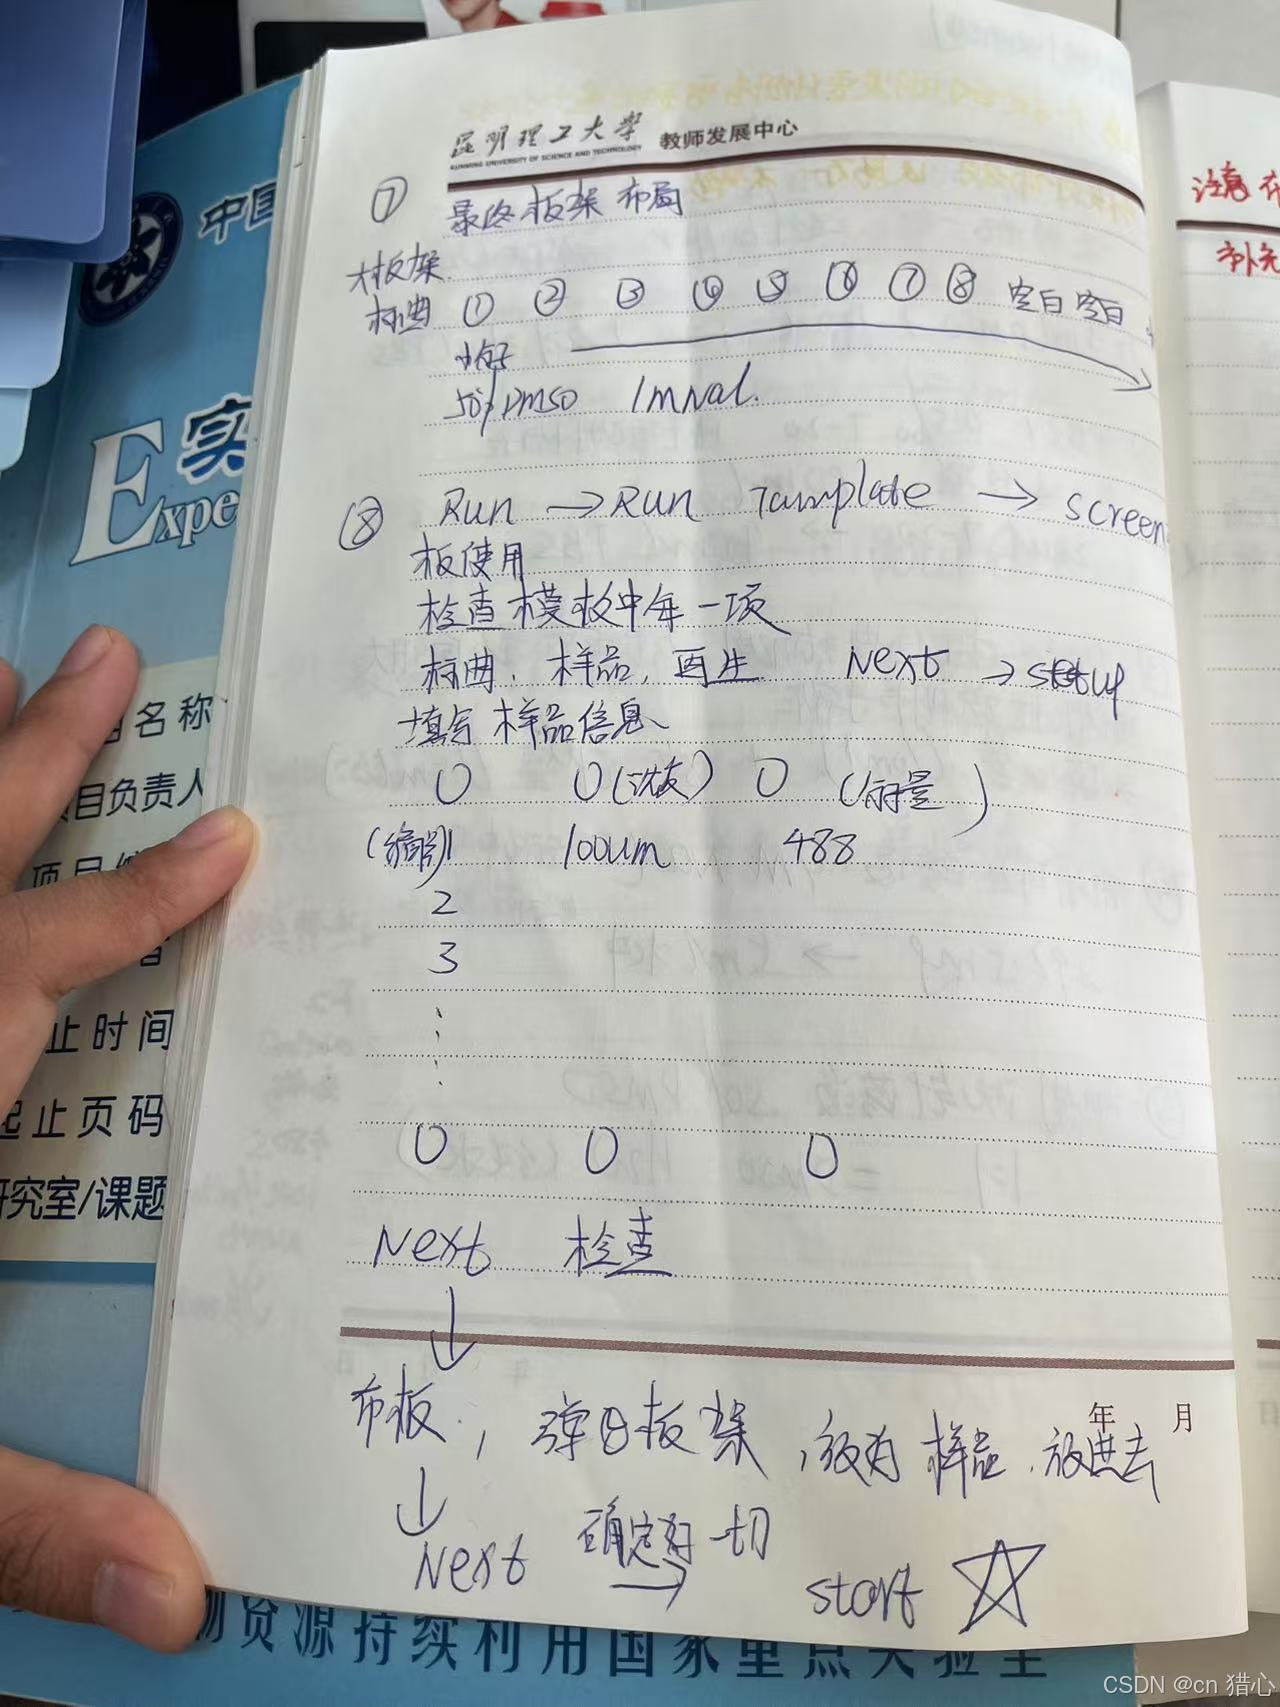 昆明理工大学 教师发展中心
KUNMING UNIVERSITY OF SCIENCE AND TECHNOLOGY
⑦ 最终板架布局
板架
标曲 ① ② ③ ④ ⑤ ⑥ ⑦ ⑧ 空白 空白
50% DMSO 1M Nacl.
⑧ Run → Run Tamplate → screen
板使用
检查模板中每一项
标曲. 样品, 再生 Next → setup
填写样品信息
0 0 (浓度) 0 (分子量)
1 100um 488
2
3
0 0 0
Next 检查
↓
布板, 弹出板架, 放有样品. 放进去
年 月
↓
Next 确定好一切 → start ☆
注意
补充
中国
实
Expe
名称
项目负责人
项目
止时间
起止页码
研究室/课题
物资源持续利用国家重点实验室
CSDN @cn 猎心